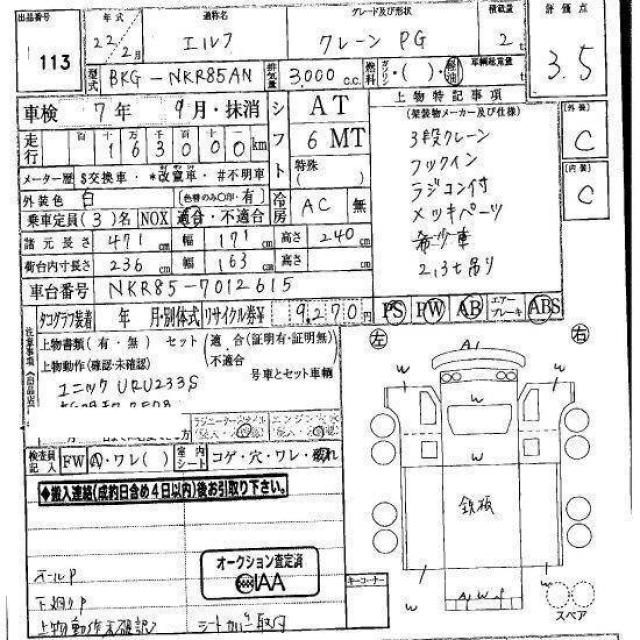 出品番号 年式 通称名 グレード及び形状 積載量 評価点
113 22年 2月 エルフ クレーン PG 2t 3.5
型式 BKG-NKR85AN 排気量 3,000 c.c. 燃料 ガソリン・( )・軽油 車輌総重量 t
車検 7年 9月・抹消 シフト AT 上物特記事項
(架装物メーカー及び仕様)
走行 百十万千百十 163000 km 6 MT 3段クレーン
メーター歴 $交換車・*改竄車・#不明車 特殊 ( ) フックイン
外装色 白 (色替のみ○印・有) 冷房 AC 無 ラジコン付
乗車定員(3)名 NOX 適合・不適合 メッキパーツ
諸元長さ 471 cm 幅 171 cm 高さ 240 cm 希少車
荷台内寸長さ 236 cm 幅 163 cm 高さ cm 2.3t吊り
車台番号 NKR85-7012615
外装 C
内装 C
タコグラフ装着 年 月・別体式 リサイクル券¥ 9,270円 PS PW AB エアーブレーキ ABS
注意事項
上物書類(有・無) セット(適合(証明有・証明無)
不適合
上物動作(確認・未確認) 号車とセット車輌
ユニック URU233S
検査員記入 FW A・ワレ( ) 室内シート コゲ・穴・ワレ・破れ
◆搬入連絡(成約日含め4日以内)後お引取り下さい。
オールP
下廻りP
上物動作未確認 シートカバー取付
オークション査定済
IAA
キーコーナー
左 右
A1
W W
W
W W
鉄板
W W
W A1 W P
スペア